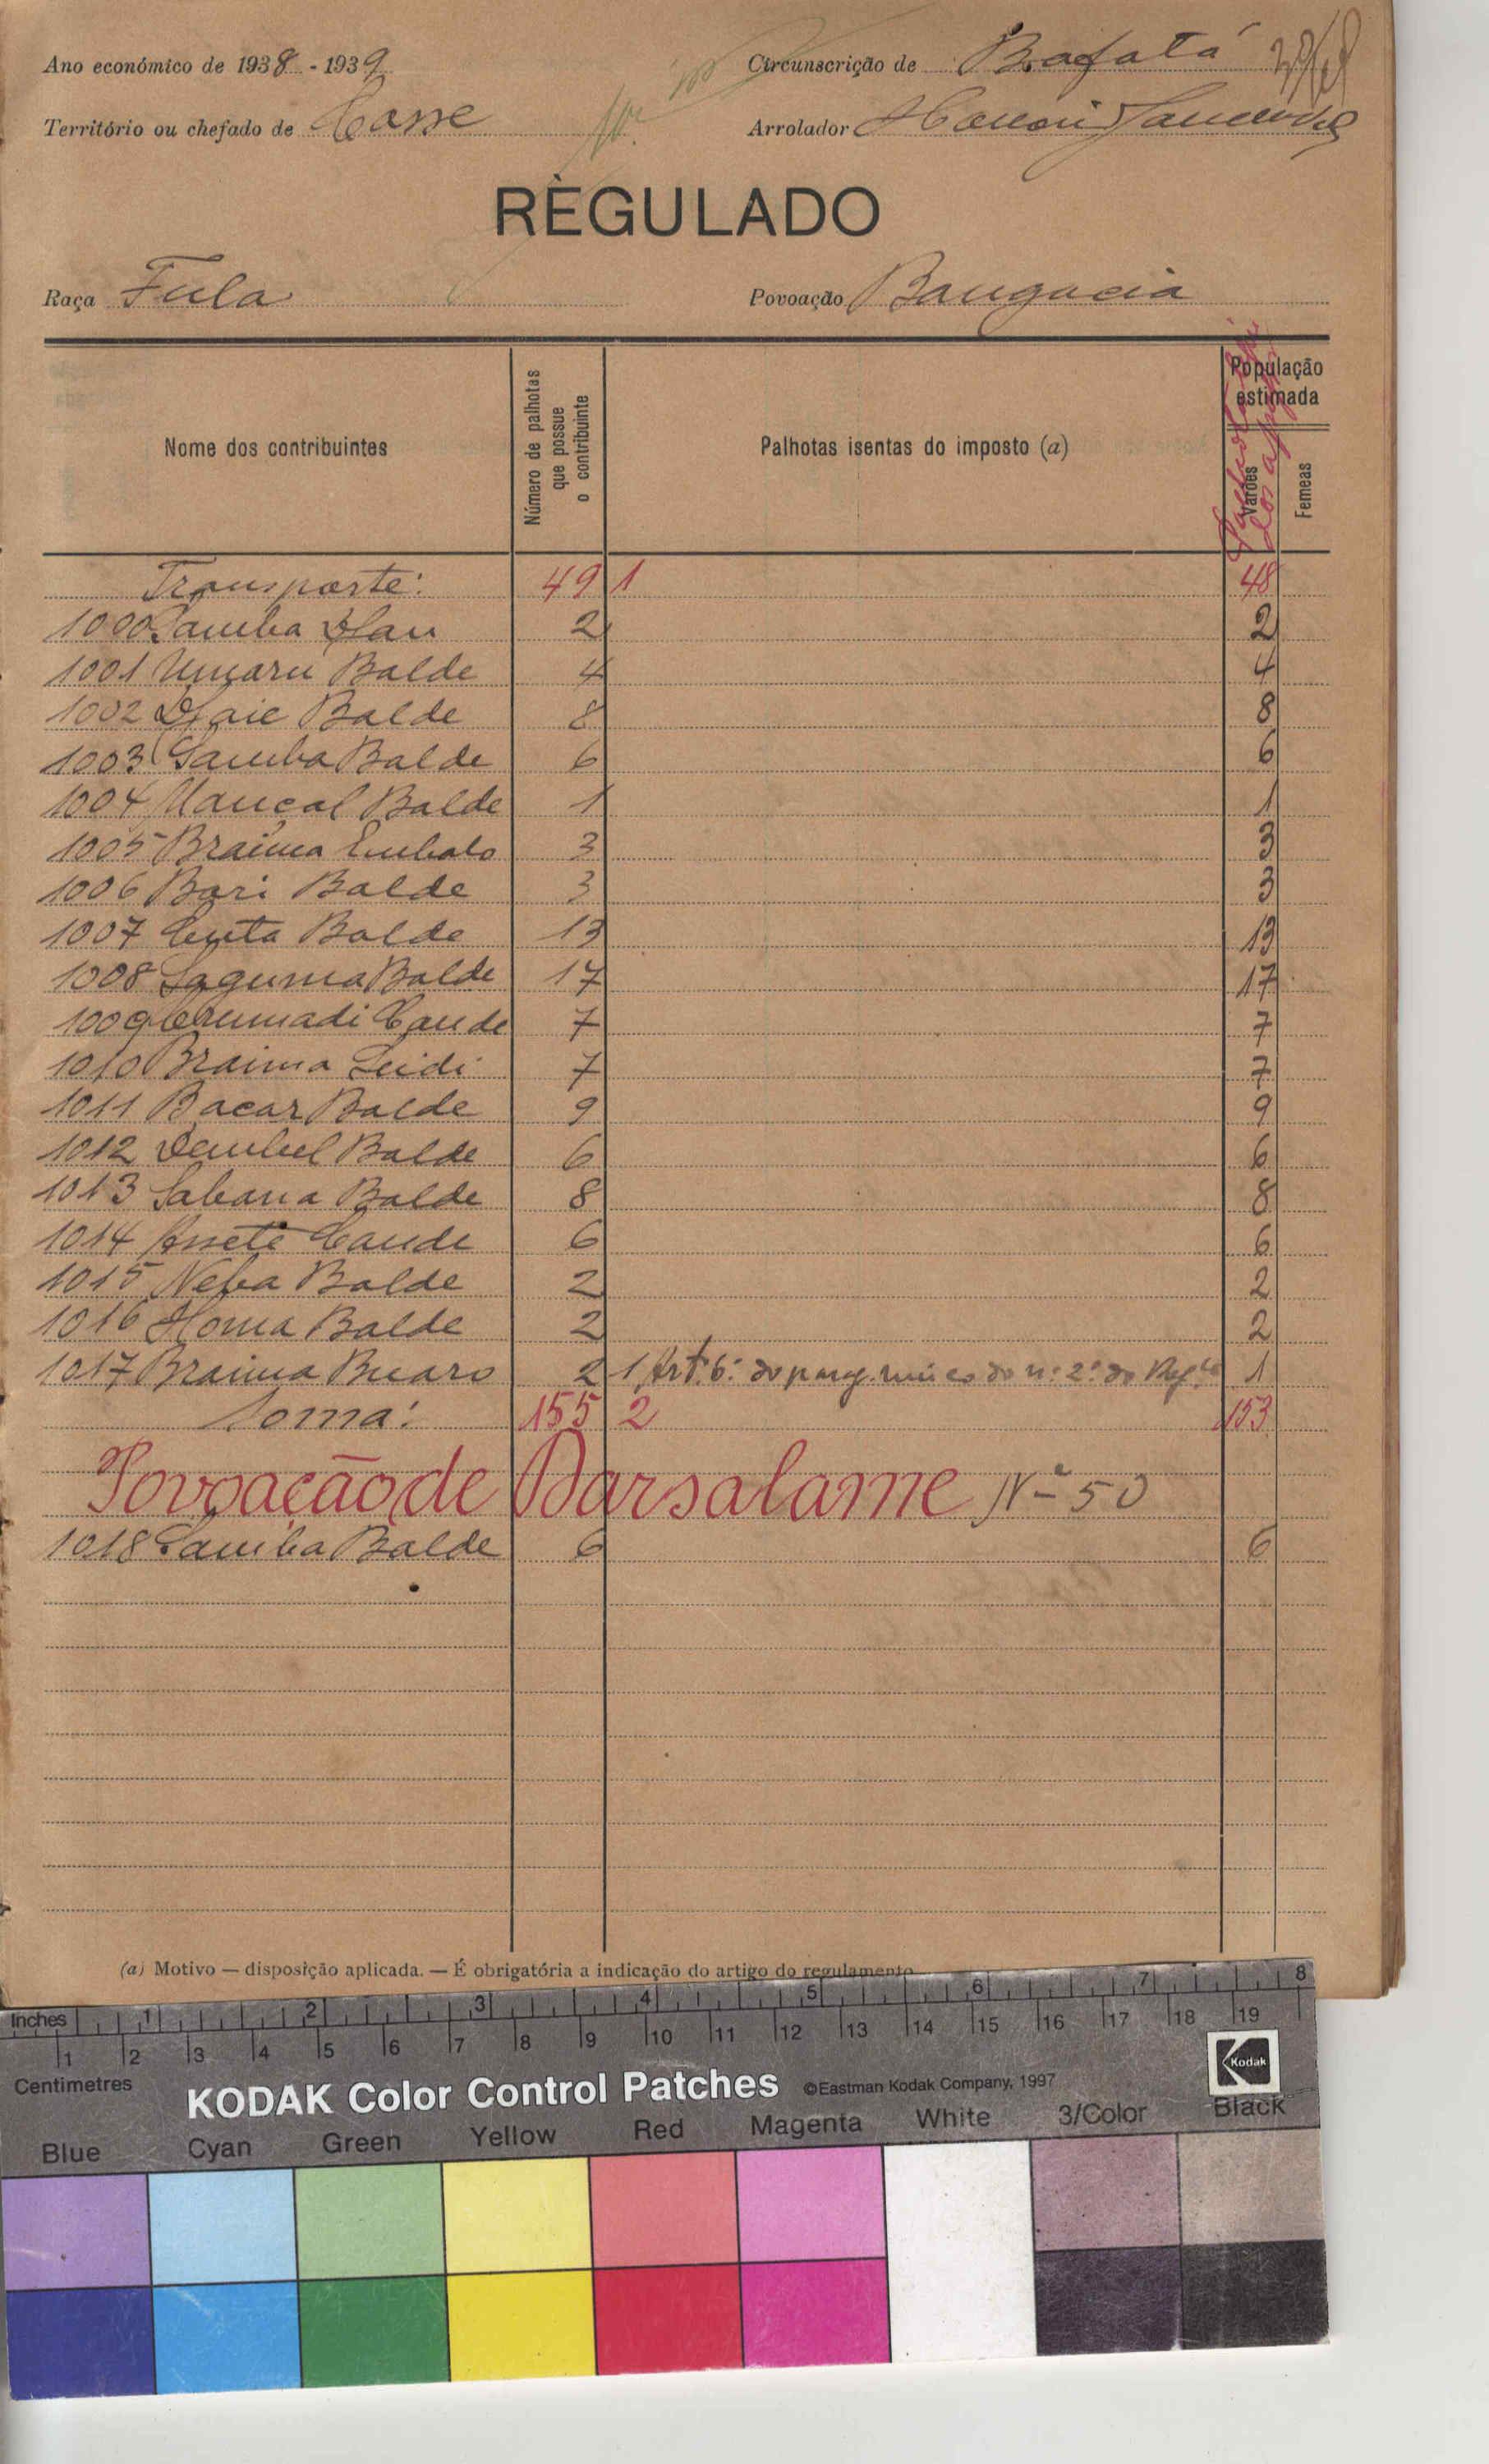 Ano económico de 1938 - 1939
Circunscrição de Bafatá
Território ou chefado de Cosse
Arrolador
RÈGULADO
Raça Fula
Povoação Bangacia
Nome dos contribuintes
Número de palhotas que possue o contribuinte
Palhotas isentas do imposto (a)
População estimada
Varões
Femeas
Transporte: 49 1 48
1000 Samba Djau 2 2
1001 Umaru Balde 4 4
1002 Djaie Balde 8 8
1003 Samba Balde 6 6
1004 Mançal Balde 1 1
1005 Braima Embalo 3 3
1006 Bari Balde 3 3
1007 Balde 13 13
1008 Saguma Balde 17 17
1009 Cande 7 7
1010 Braima Seidi 7 7
1011 Bacar Balde 9 9
1012 Dembel Balde 6 6
1013 Sabana Balde 8 8
1014 Cande 6 6
1015 Balde 2 2
1016 Balde 2 2
1017 Braima Buaro 2 1 Art.º 6.º do parag. unico do n.º 2.º do Reg.to 1
Soma: 155 2 153
Povoação de Darsalame Nº 50
1018 Samba Balde 6 6
(a) Motivo — disposição aplicada. — É obrigatória a indicação do artigo do regulamento
Inches 1 2 3 4 5 6 7 8
1 2 3 4 5 6 7 8 9 10 11 12 13 14 15 16 17 18 19
Centimetres
KODAK Color Control Patches ©Eastman Kodak Company, 1997
Kodak
Blue Cyan Green Yellow Red Magenta White 3/Color Black